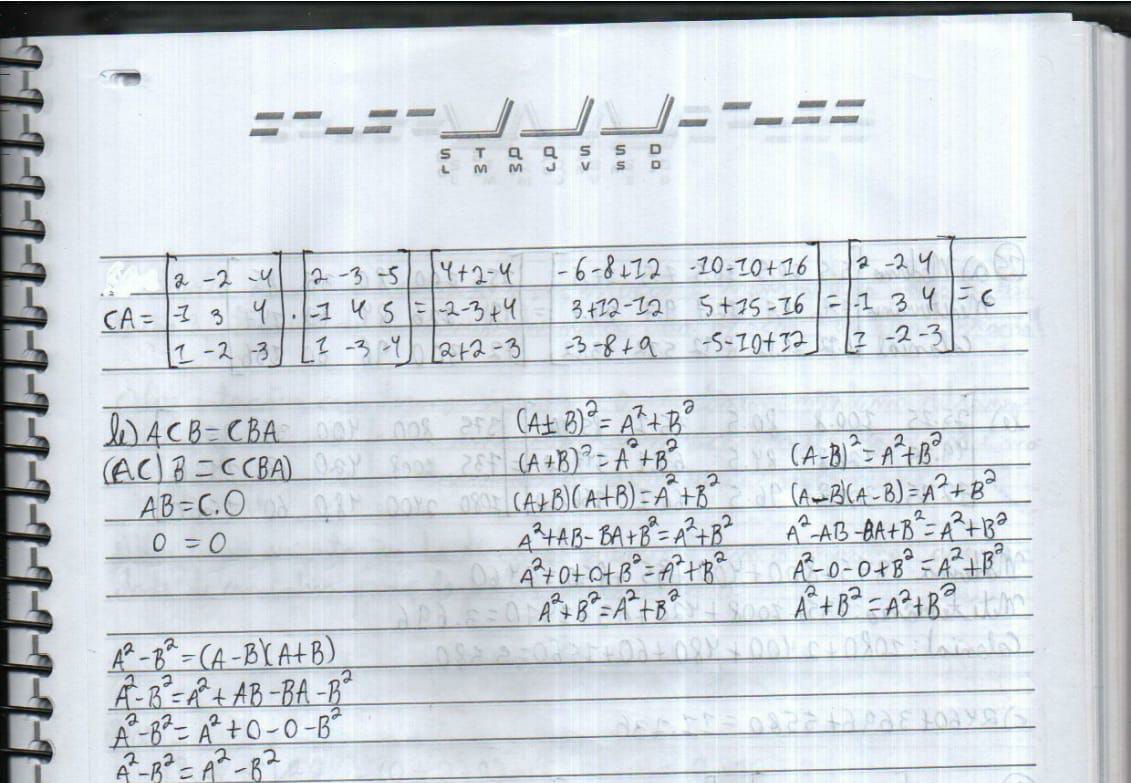 S T Q Q S S D
L M M J V S D
CA = [2 -2 -4 / -1 3 4 / 1 -2 -3] . [2 -3 -5 / -1 4 5 / 1 -3 -4] = [4+2-4 -6-8+12 -10-10+16 / -2-3+4 3+12-12 5+15-16 / 2+2-3 -3-8+9 -5-10+12] = [2 -2 4 / -1 3 4 / 1 -2 -3] = C
b) ACB = CBA
(AC) B = C (BA)
AB = C.0
0 = 0
(A±B)² = A²+B²
(A+B)² = A²+B²
(A+B)(A+B) = A²+B²
A²+AB-BA+B² = A²+B²
A²+0+0+B² = A²+B²
A²+B² = A²+B²
(A-B)² = A²+B²
(A-B)(A-B) = A²+B²
A²-AB-BA+B² = A²+B²
A²-0-0+B² = A²+B²
A²+B² = A²+B²
A²-B² = (A-B)(A+B)
A²-B² = A²+AB-BA-B²
A²-B² = A²+0-0-B²
A²-B² = A²-B²